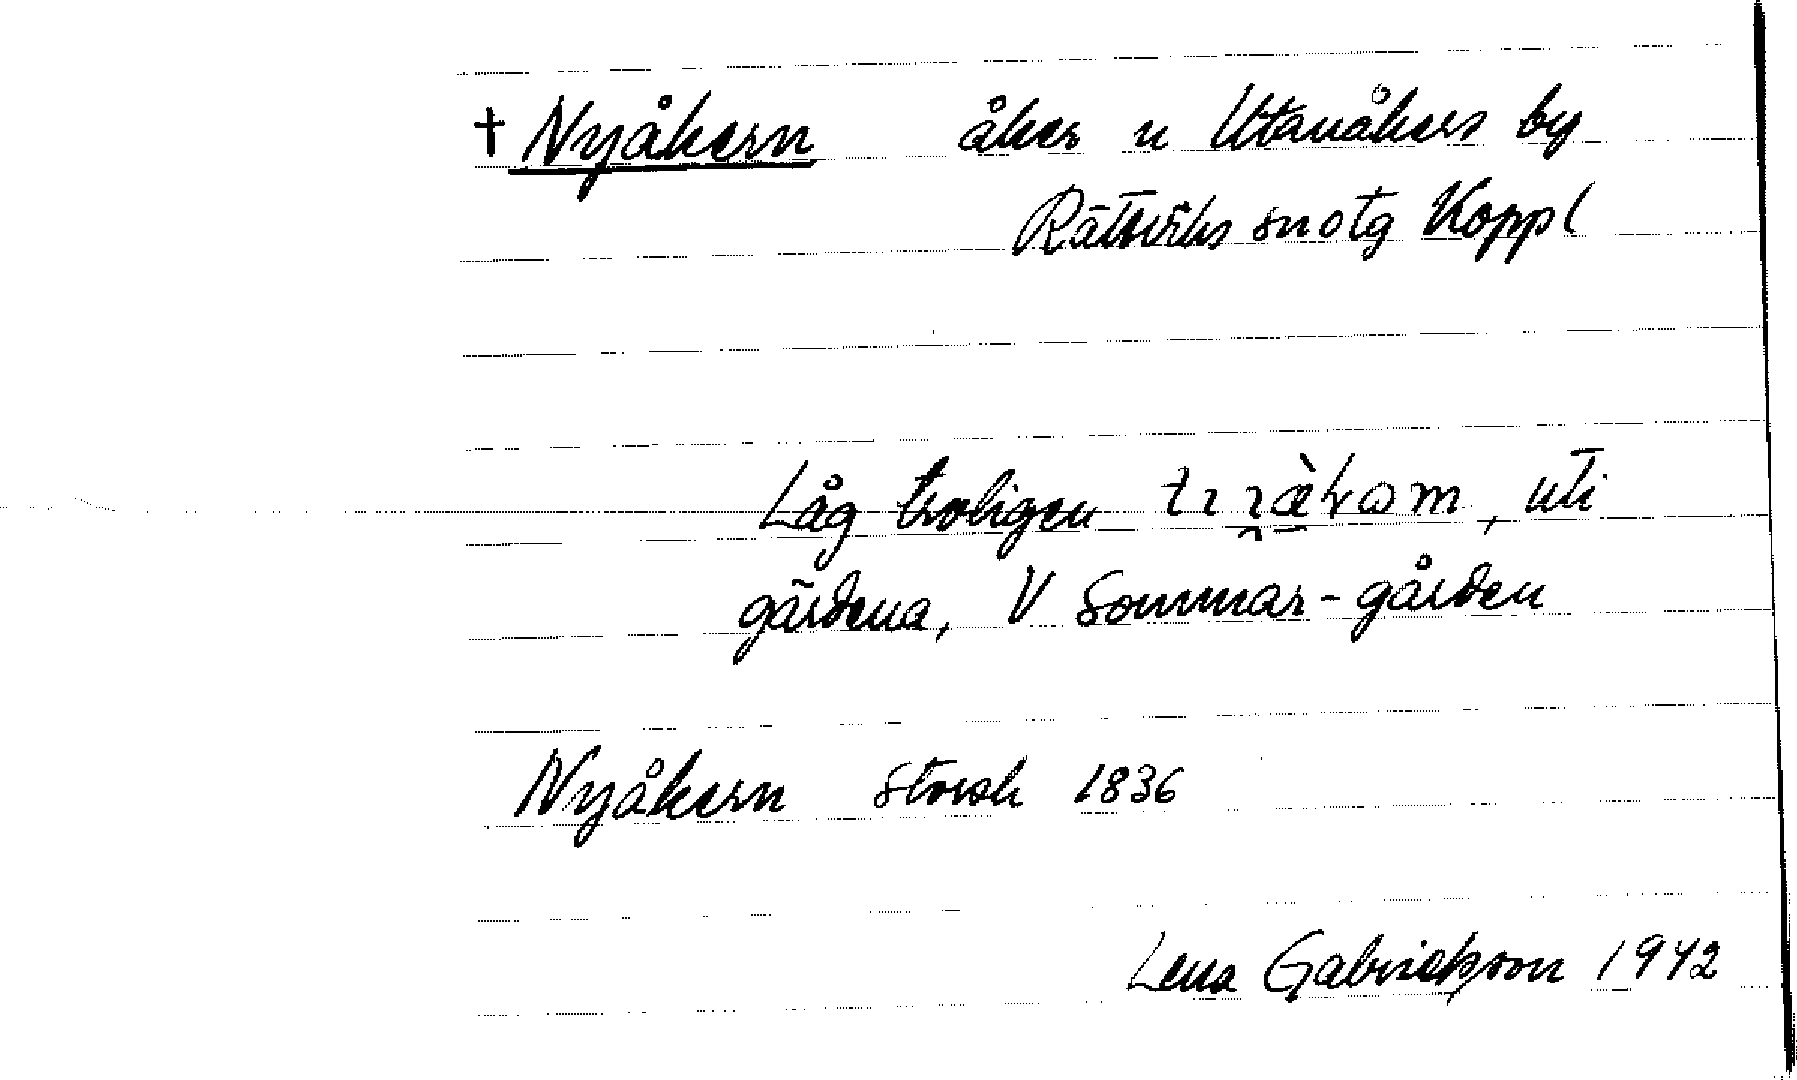 † Nyåkern åker n Utanåkers by
Rättviks sn otg Koppl
Låg troligen , uti
gärdena, V Sommar-gården
Nyåkern Storsk 1836
Lena Gabrielsson 1942